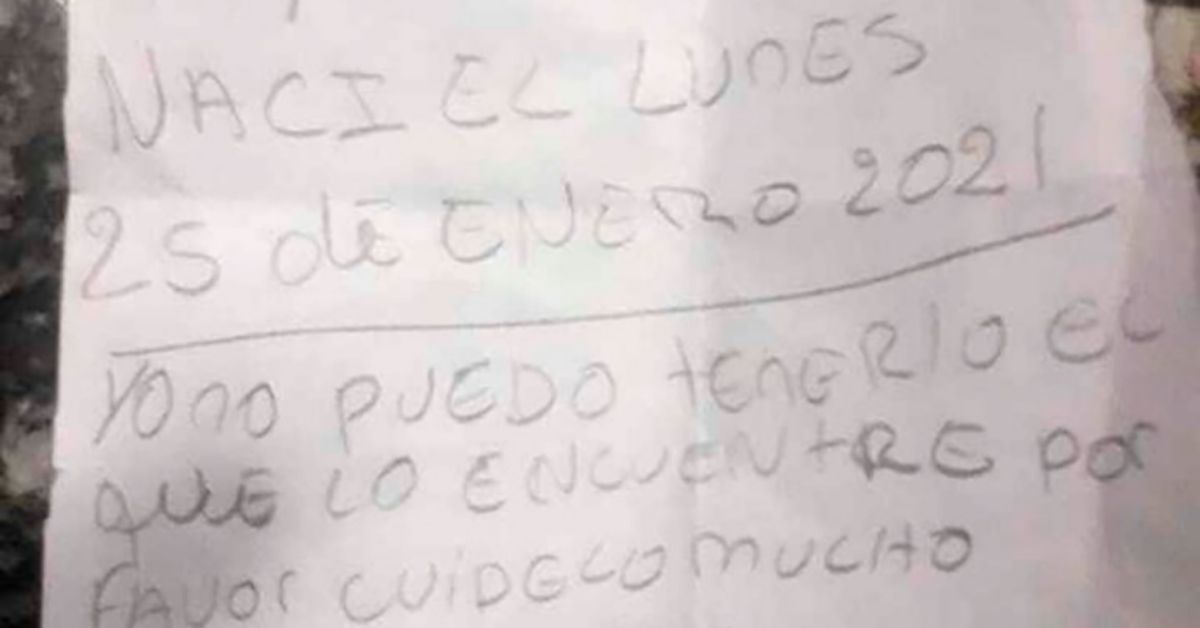 NACI EL LUNES
25 de ENERO 2021
YO no PUEDO tENERlO EL
QUE LO ENCUENtRE por
FAVor CUiDELO MUCHO